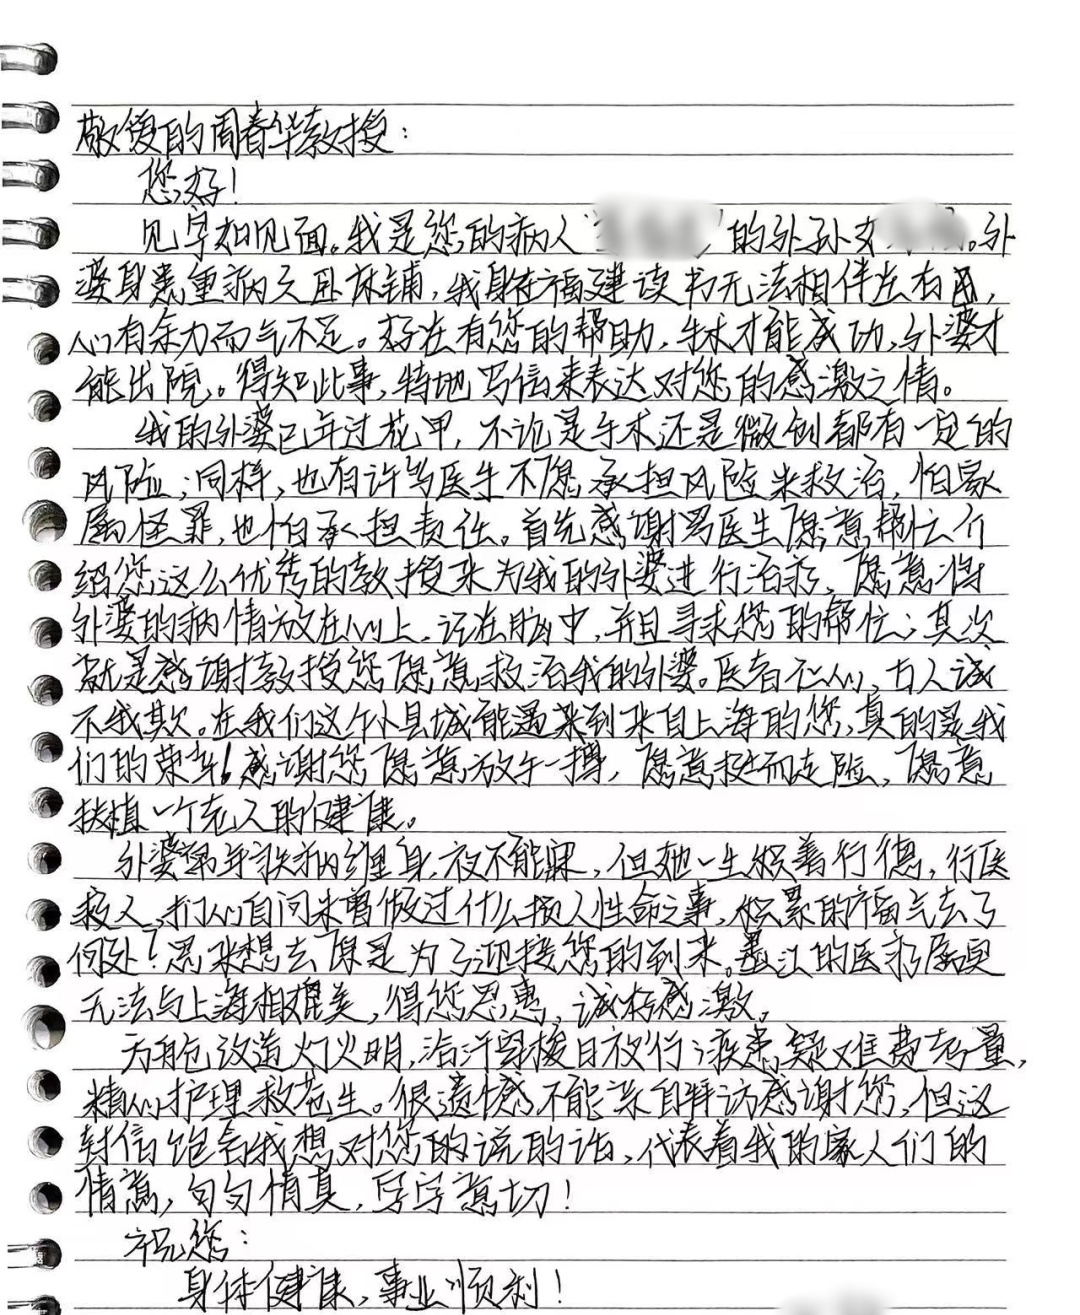 敬爱的周春华教授：
您好！
见字如见面。我是您的病人"的外孙女。外
婆身患重病久卧床铺，我身在福建读书无法相伴左右，
心有余力而气不足。好在有您的帮助，手术才能成功，外婆才
能出院。得知此事，特地写信来表达对您的感激之情。
我的外婆已年过花甲，不论是手术还是微创都有一定的
风险；同样，也有许多医生不愿承担风险来救治，怕家
属怪罪，也怕承担责任。首先感谢骂医生愿意帮忙介
绍您这么优秀的教授来为我的外婆进行治疗，愿意得
外婆的病情放在心上，记在脑中，并且寻求您的帮忙；其次
就是感谢教授您愿意救治我的外婆。医者仁心，古人诚
不我欺。在我们这个小县城能遇来到来自上海的您，真的是我
们的荣幸！感谢您愿意放手一搏，愿意挺而走险，愿意
扶植一个老人的健康。
外婆常年疾病缠身夜不能寐，但她一生积善行德，行医
救人，扪心自问未曾做过什么损人性命之事，积累的福气去了
何处？思来想去原是为了迎接您的到来。墨江的医疗属实
无法与上海相媲美，得您恩惠，诚挚感激。
改造灯火明，治汗日夜行；疾患疑难费考量，
精心护理救苍生。很遗憾不能亲自拜访感谢您，但这
封信饱含我想对您的说的话，代表着我的家人们的
情意，句句情真，字字意切！
祝您：
身体健康，事业顺利！